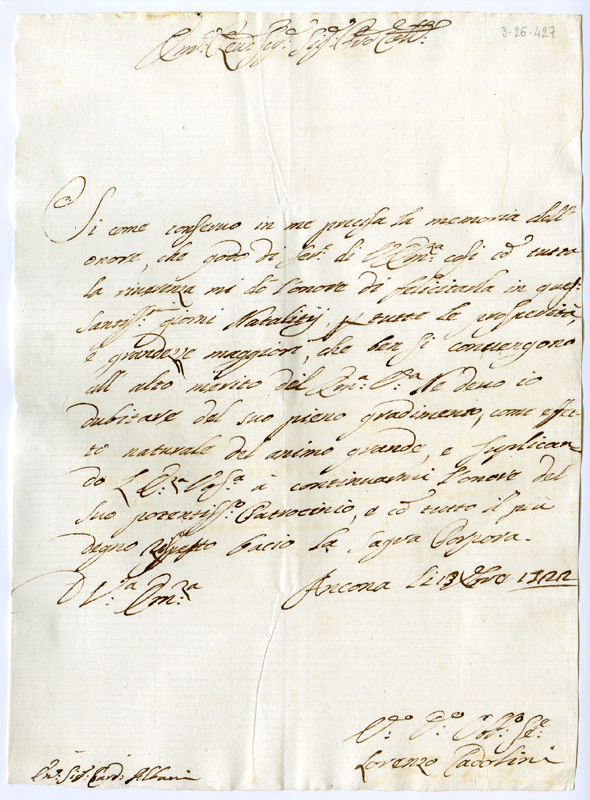 3-26-427
Em.º Rev.º Sig.r Sig.r P.rone Coll.mo
Si come conseruo in me precisa la memoria dell'
onore, che godo di ser.e di V. Em.za cosi cō tutta
la riuerenza mi dò l'onore di felicitarla in questi
Santiss.mi giorni Natalitij, p tutte le prosperità,
e grandezze maggiori, che ben si conuengono
all' alto merito del Em.za V.ra Ne deuo io
dubitare del suo pieno gradimento, come effet-
to naturale del animo grande, e suplican
do l'E.za V.ra à continuarmi l'onore del
suo potentiss.º Patrocinio, e cō tutto il più
degno rispetto bacio la Sagra Porpora.
D V.ra Em.za Ancona li 13 Xbre 1722
Lorenzo Cadolini
Em.º Sig.r Card. Albani